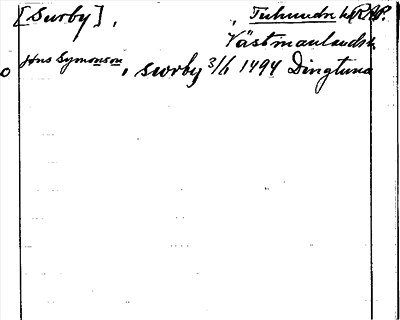 [Surby], , Tuhundra h RAP.
Västmanlands l.
o Jöns Symonson, Sworby 3/6 1494 Dingtuna